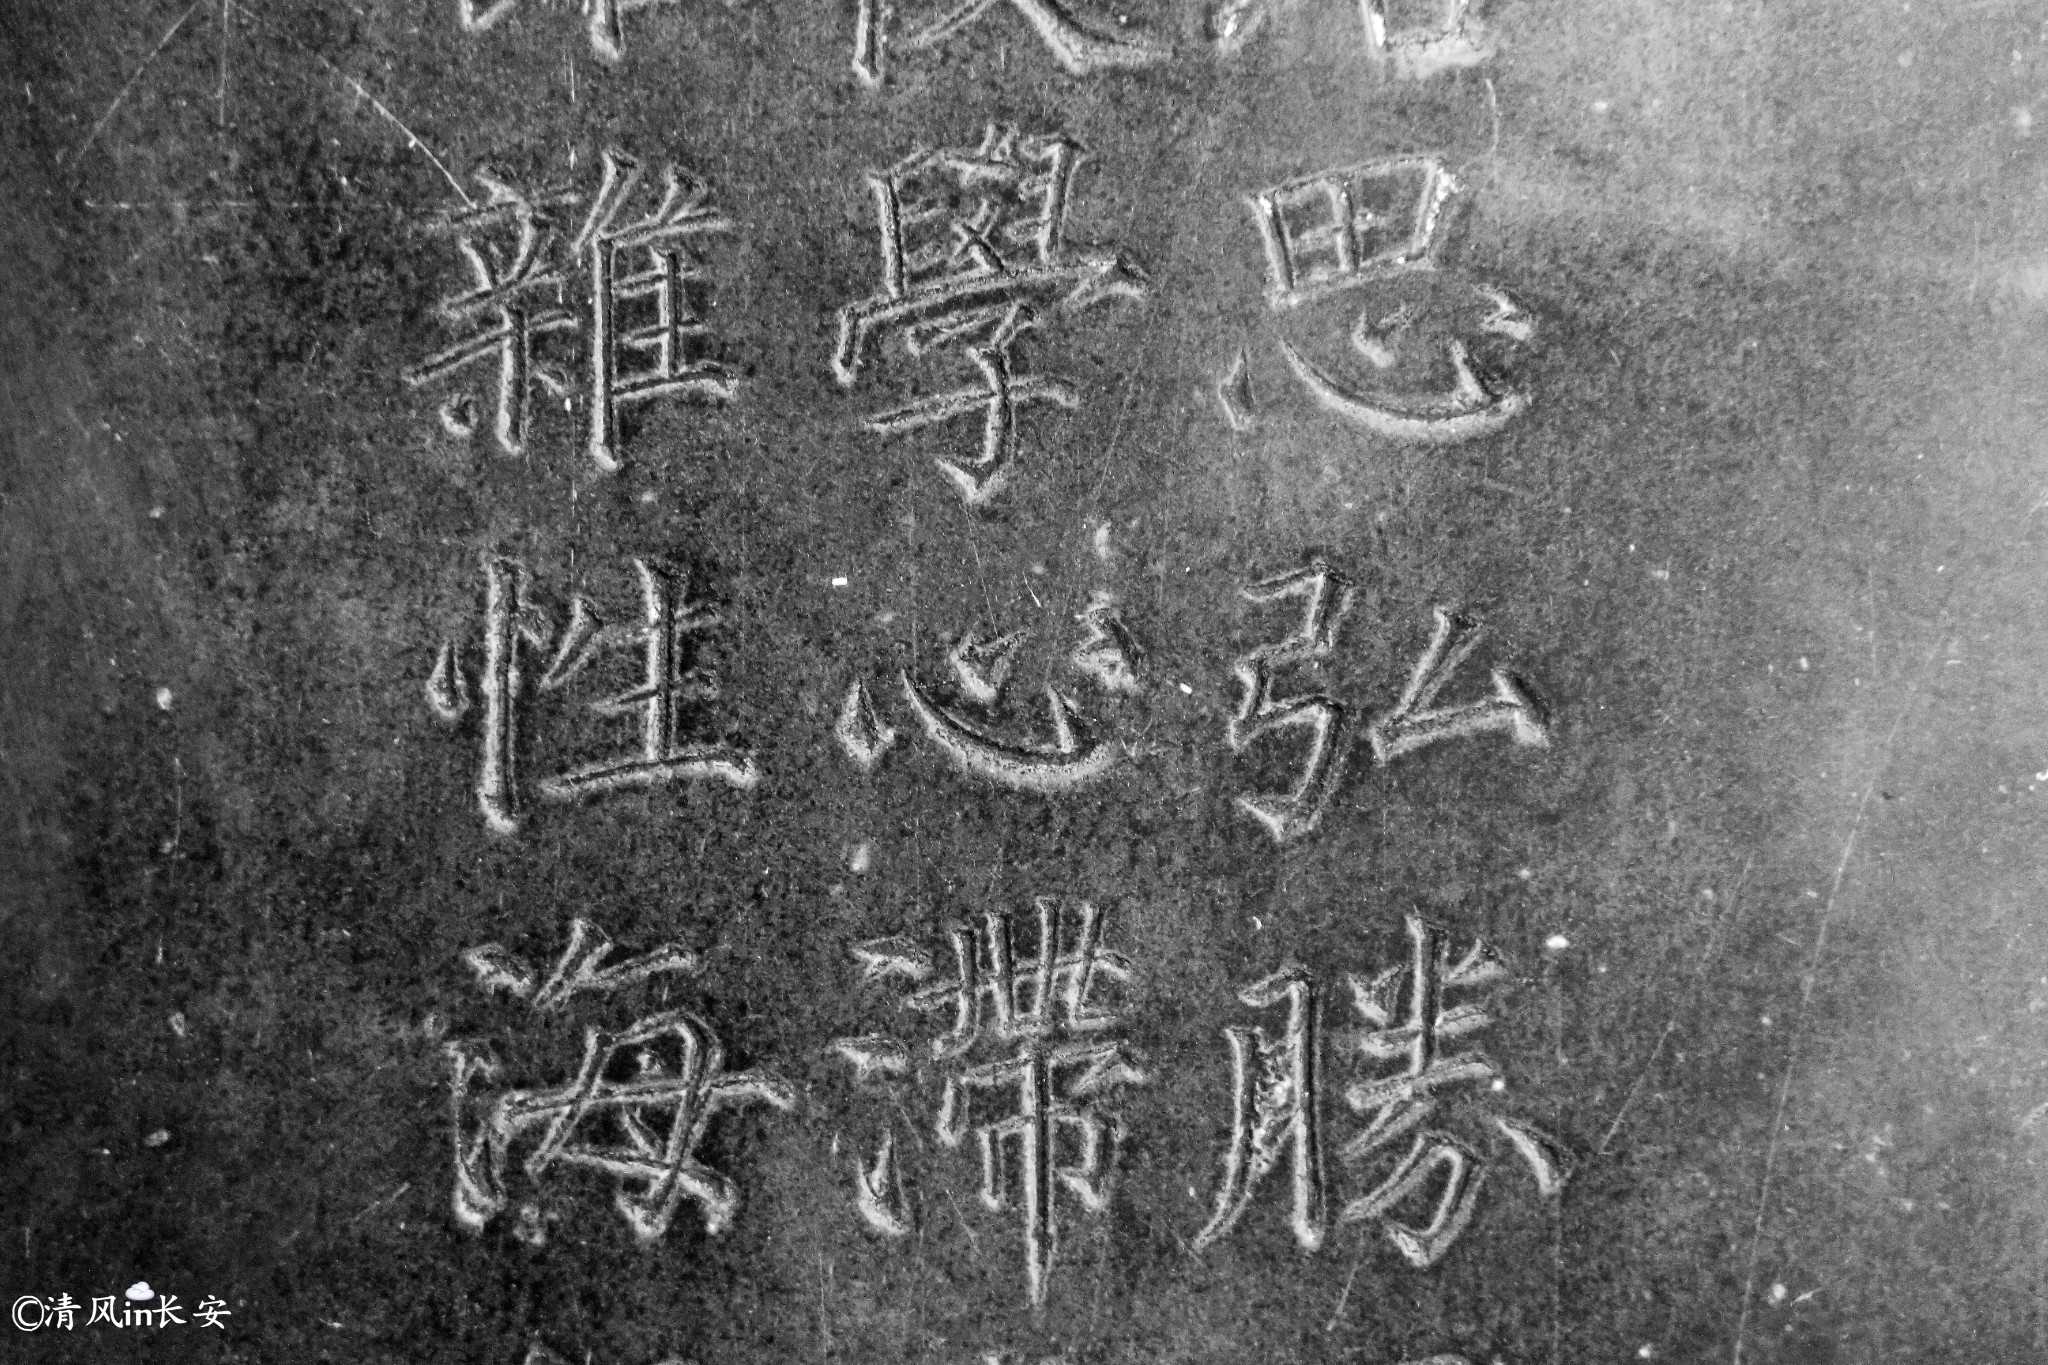 思弘勝
學心滯
雜性海
©清风in长安